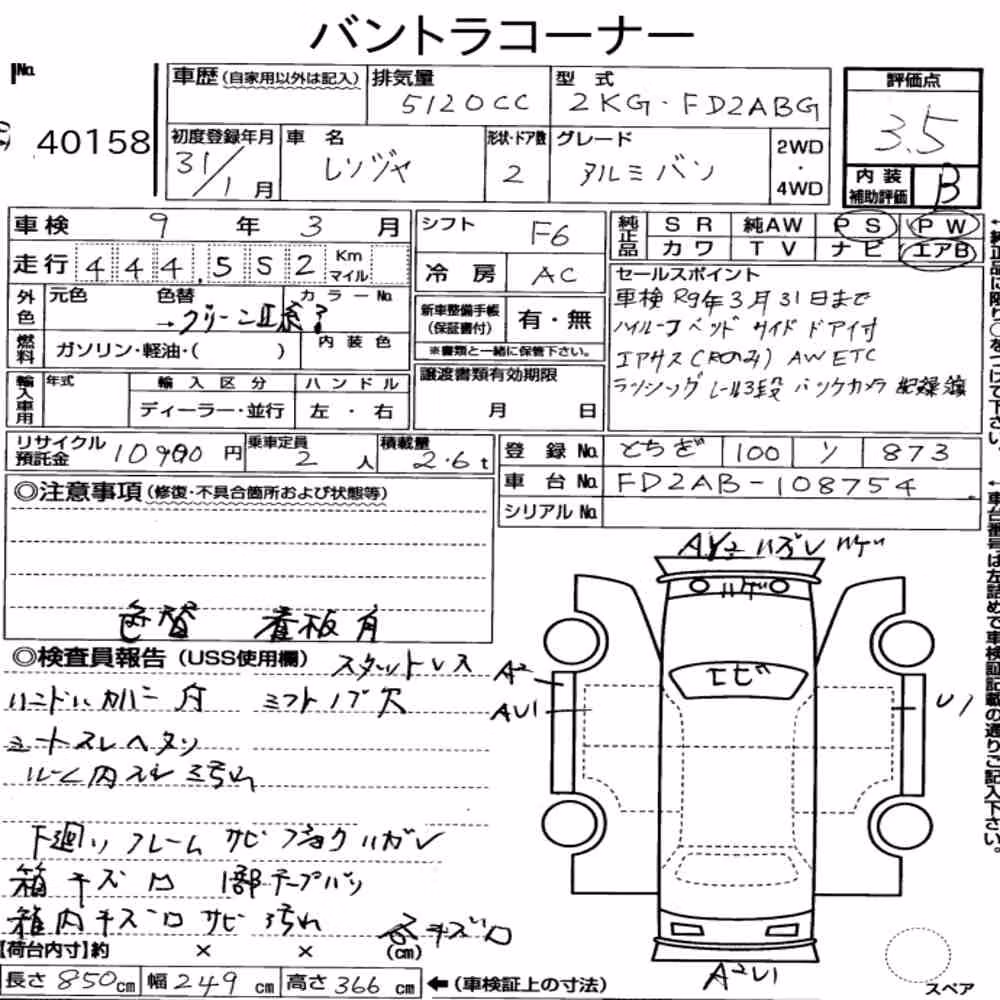 バントラコーナー
No.
40158
車歴 (自家用以外は記入)
排気量
5120CC
型式
2KG・FD2ABG
評価点
3.5
初度登録年月
31/1月
車名
レンジャ
形状・ドア数
2
グレード
アルミバン
2WD・4WD
内装補助評価
B
車検 9年3月
走行 444,552 Km マイル
シフト F6
冷房 AC
純正品 SR 純AW PS PW
カワ TV ナビ エアB
外色 元色 色替 カラーNo.
→グリーンⅡ系了
燃料 ガソリン・軽油・( )
内装色
新車整備手帳(保証書付) 有・無
※書類と一緒に保管下さい。
セールスポイント
車検R9年3月31日まで
ハイルーフ ベッド サイドドア付
エアサス(Rのみ) AW ETC
ラッシングレール3段 バックカメラ 記録簿
輸入車用 年式 輸入区分 ハンドル
ディーラー・並行 左・右
譲渡書類有効期限
月 日
リサイクル預託金 10900円
乗車定員 2人
積載量 2.6t
登録No. とちぎ 100 ソ 873
車台No. FD2AB-108754
シリアルNo.
◎注意事項 (修復・不具合箇所および状態等)
色替 看板有
◎検査員報告 (USS使用欄)
スタットレス
ハンドルカバー付 シフトノブ穴
シートスレヘタリ
ルーム内スレ汚れ
下廻り フレーム サビ フショク ハガレ
箱キズロ 1部テープバリ
箱内キズロ サビ 汚れ
各キズロ
AY2 ハズレ ハゲ
ハゲ
トビ
A2
AU1
U1
A2U1
スペア
【荷台内寸】約 × × (cm)
長さ850cm 幅249cm 高さ366cm ←(車検証上の寸法)
←純正品に限り○をつけて下さい。
←車台番号は左詰めで車検証記載の通りご記入下さい。